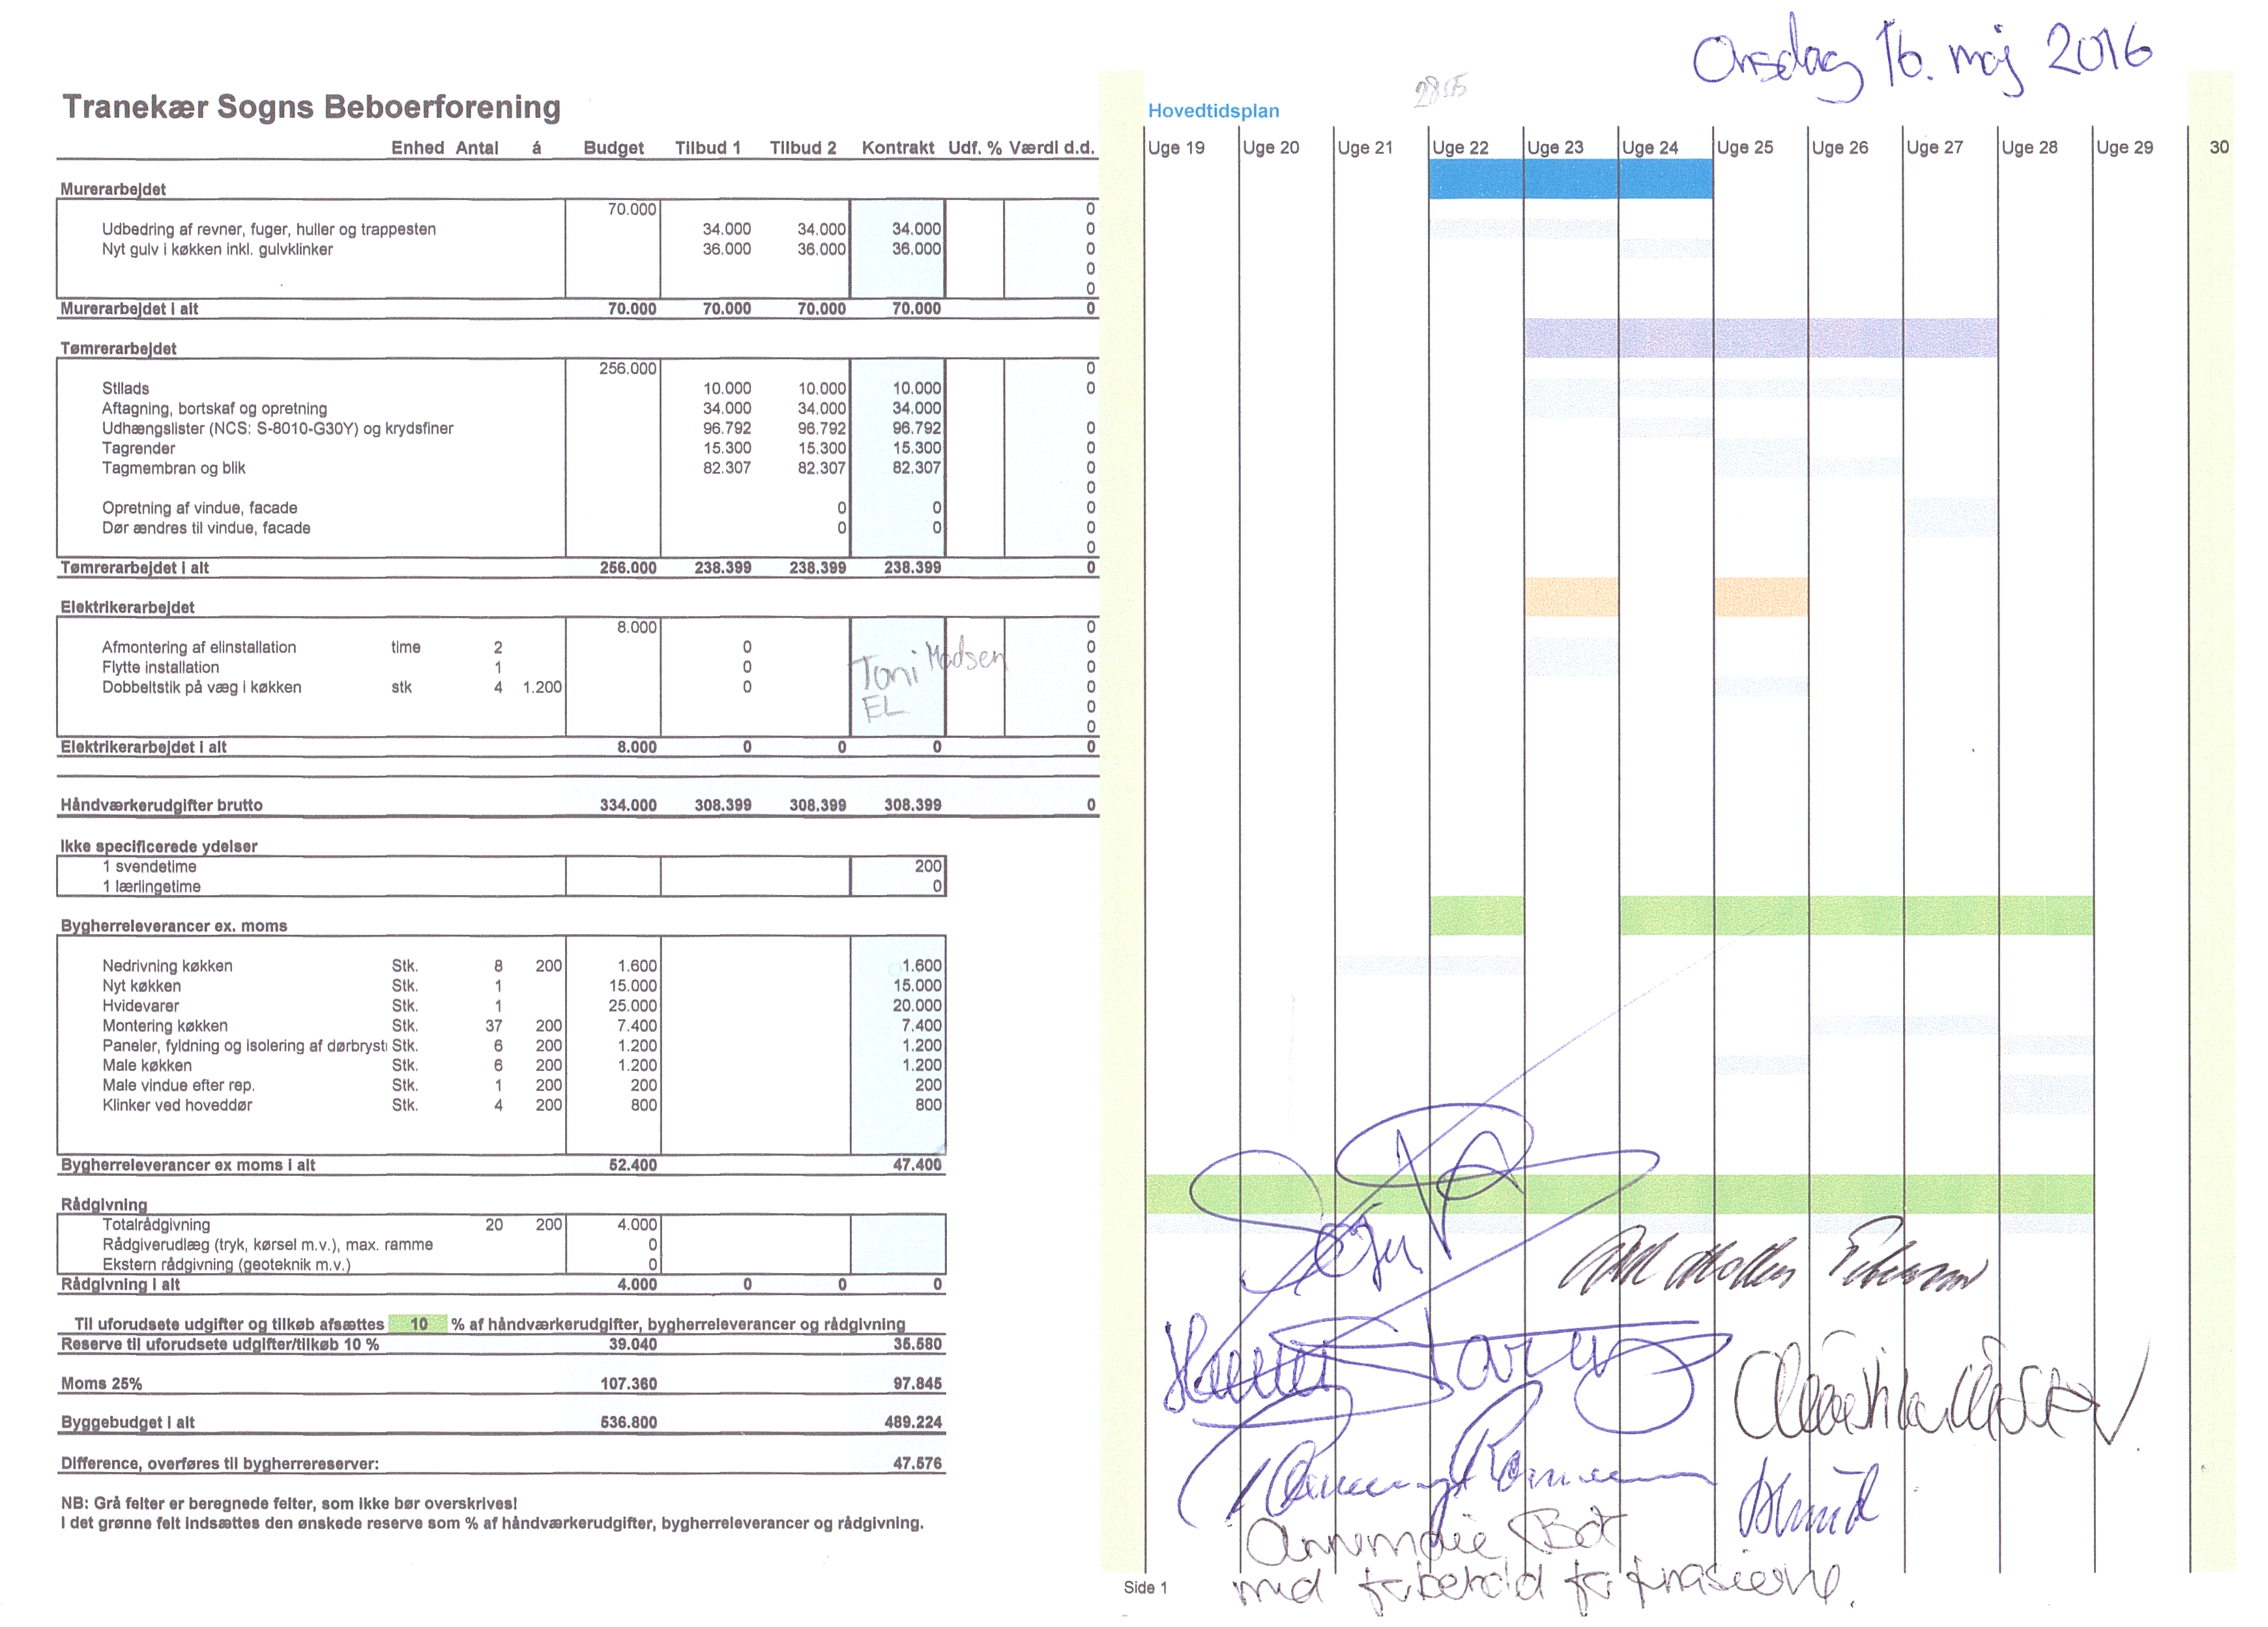 Onsdag 16. maj 2016
Tranekær Sogns Beboerforening
Hovedtidsplan
Enhed Antal á Budget Tilbud 1 Tilbud 2 Kontrakt Udf. % Værdi d.d. Uge 19 Uge 20 Uge 21 Uge 22 Uge 23 Uge 24 Uge 25 Uge 26 Uge 27 Uge 28 Uge 29 30
Murerarbejdet
70.000 0
Udbedring af revner, fuger, huller og trappesten 34.000 34.000 34.000 0
Nyt gulv i køkken inkl. gulvklinker 36.000 36.000 36.000 0
0
0
Murerarbejdet i alt 70.000 70.000 70.000 70.000 0
Tømrerarbejdet
256.000 0
Stillads 10.000 10.000 10.000 0
Aftagning, bortskaf og opretning 34.000 34.000 34.000
Udhængslister (NCS: S-8010-G30Y) og krydsfiner 96.792 96.792 96.792 0
Tagrender 15.300 15.300 15.300 0
Tagmembran og blik 82.307 82.307 82.307 0
0
Opretning af vindue, facade 0 0 0
Dør ændres til vindue, facade 0 0 0
0
Tømrerarbejdet i alt 256.000 238.399 238.399 238.399 0
Elektrikerarbejdet
8.000 0
Afmontering af elinstallation time 2 0 0
Flytte installation 1 0 0
Dobbeltstik på væg i køkken stk 4 1.200 0 0
Toni Madsen
EL
0
0
Elektrikerarbejdet i alt 8.000 0 0 0 0
Håndværkerudgifter brutto 334.000 308.399 308.399 308.399 0
Ikke specificerede ydelser
1 svendetime 200
1 lærlingetime 0
Bygherreleverancer ex. moms
Nedrivning køkken Stk. 8 200 1.600 1.600
Nyt køkken Stk. 1 15.000 15.000
Hvidevarer Stk. 1 25.000 20.000
Montering køkken Stk. 37 200 7.400 7.400
Paneler, fyldning og isolering af dørbrysti Stk. 6 200 1.200 1.200
Male køkken Stk. 6 200 1.200 1.200
Male vindue efter rep. Stk. 1 200 200 200
Klinker ved hoveddør Stk. 4 200 800 800
Bygherreleverancer ex moms i alt 52.400 47.400
Rådgivning
Totalrådgivning 20 200 4.000
Rådgiverudlæg (tryk, kørsel m.v.), max. ramme 0
Ekstern rådgivning (geoteknik m.v.) 0
Rådgivning i alt 4.000 0 0 0
Til uforudsete udgifter og tilkøb afsættes 10 % af håndværkerudgifter, bygherreleverancer og rådgivning
Reserve til uforudsete udgifter/tilkøb 10 % 39.040 35.580
Moms 25% 107.360 97.845
Byggebudget i alt 536.800 489.224
Difference, overføres til bygherrereserver: 47.576
NB: Grå felter er beregnede felter, som ikke bør overskrives!
I det grønne felt indsættes den ønskede reserve som % af håndværkerudgifter, bygherreleverancer og rådgivning.
Annemarie
med forbehold for finansierne.
Side 1